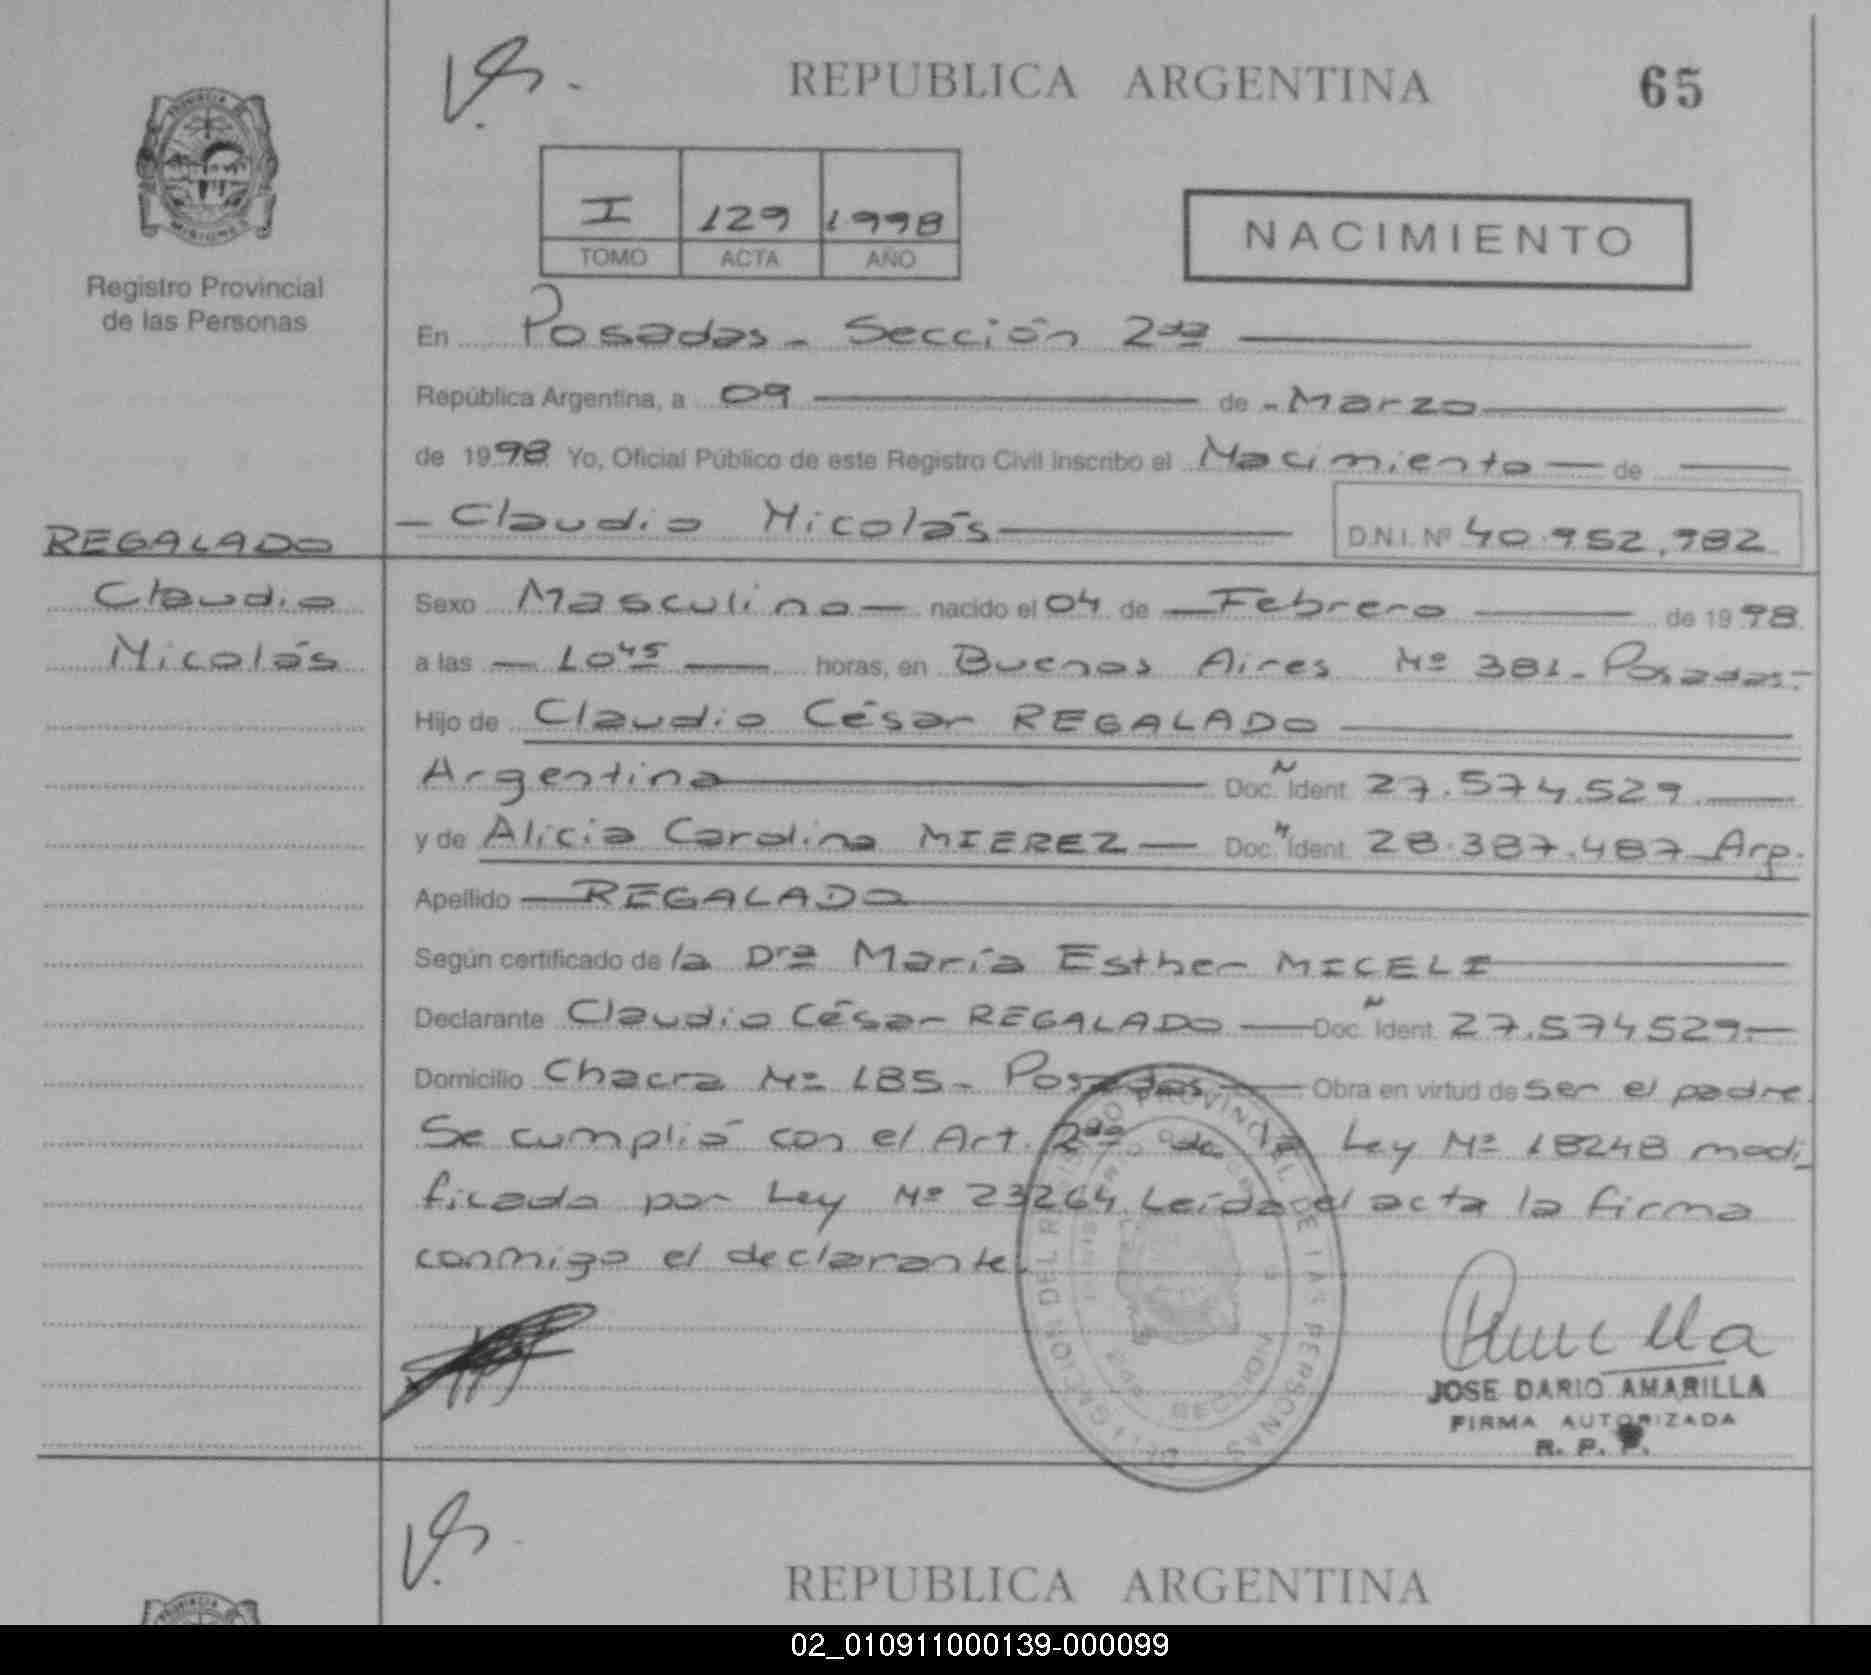 V°B°.
REPUBLICA ARGENTINA
65
PROVINCIA DE
MISIONES
Registro Provincial
de las Personas
I 129 1998
TOMO ACTA AÑO
NACIMIENTO
En Posadas - Sección 2da
República Argentina, a 09 de - Marzo
de 1998 Yo, Oficial Público de este Registro Civil inscribo el Nacimiento de
- Claudio Nicolás D.N.I. Nº 40.952.982
REGALADO
Claudio
Nicolás
Sexo Masculino nacido el 04 de Febrero de 1998
a las 10 45 horas, en Buenos Aires Nº 381 - Posadas-
Hijo de Claudio César REGALADO
Argentina Doc. Ident. 27.574.529
y de Alicia Carolina MIEREZ Doc. Ident. 28.387.487 Arg.
Apellido REGALADO
Según certificado de la Dra María Esther MICELI
Declarante Claudio César REGALADO Doc. Ident. 27.574529.-
Domicilio Chacra Nº 185 - Posadas Obra en virtud de ser el padre
Se cumplió con el Art. 2do de la Ley Nº 18248 modi-
ficado por Ley Nº 23264 Leída el acta la firma
conmigo el declarante.
JOSE DARIO AMARILLA
FIRMA AUTORIZADA
R. P. P.
REPUBLICA ARGENTINA
PROVINCIA
02_010911000139-000099